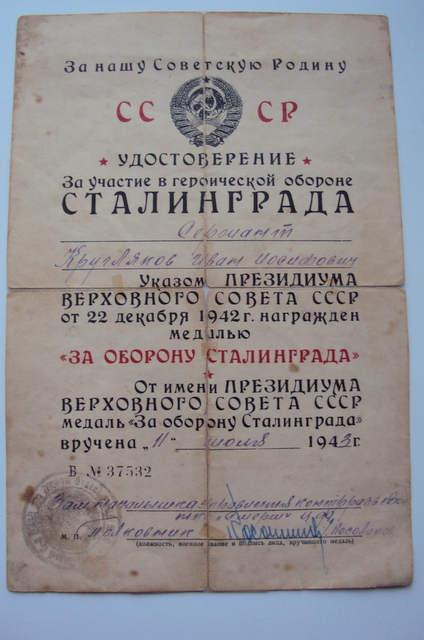 За нашу Советскую Родину
СС СР
УДОСТОВЕРЕНИЕ
За участие в героической обороне
СТАЛИНГРАДА
Сержант
Кругляков Иван Иосифович
Указом ПРЕЗИДИУМА
ВЕРХОВНОГО СОВЕТА СССР
от 22 декабря 1942 г. награжден
медалью
«ЗА ОБОРОНУ СТАЛИНГРАДА»
От имени ПРЕЗИДИУМА
ВЕРХОВНОГО СОВЕТА СССР
медаль «За оборону Сталинграда»
вручена „11" июля 1943 г.
В № 37532
Зам начальника управления контрразведки
"Смерш"
М. П. полковник
(должность, военное звание и подпись лица, вручившего медаль)